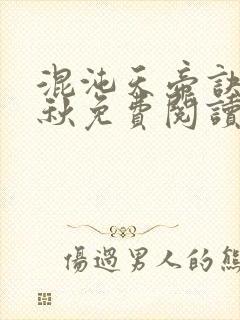 混沌天帝訣
秋免費閱讀
傷過男人的熊